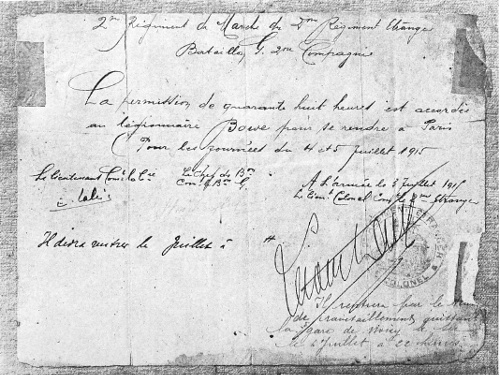 2me Régiment de Marche du 2me Régiment Etranger
Bataillon G. 2me Compagnie
La permission de quarante huit heures est accordée
au légionnaire Bowe pour se rendre à Paris
Pour les journées du 4 et 5 Juillet 1915
Le Lieutenant Comt la Cie
Le Chef de Bon
Comt le Bon G.
A l'armée le 3 Juillet 1915
Le Lieut Colonel Comt le 2me Etranger
Il devra rentrer le Juillet à H
Il rentrera par le
de ravitaillement quittant
la gare de Noisy
le Juillet à 22 heures